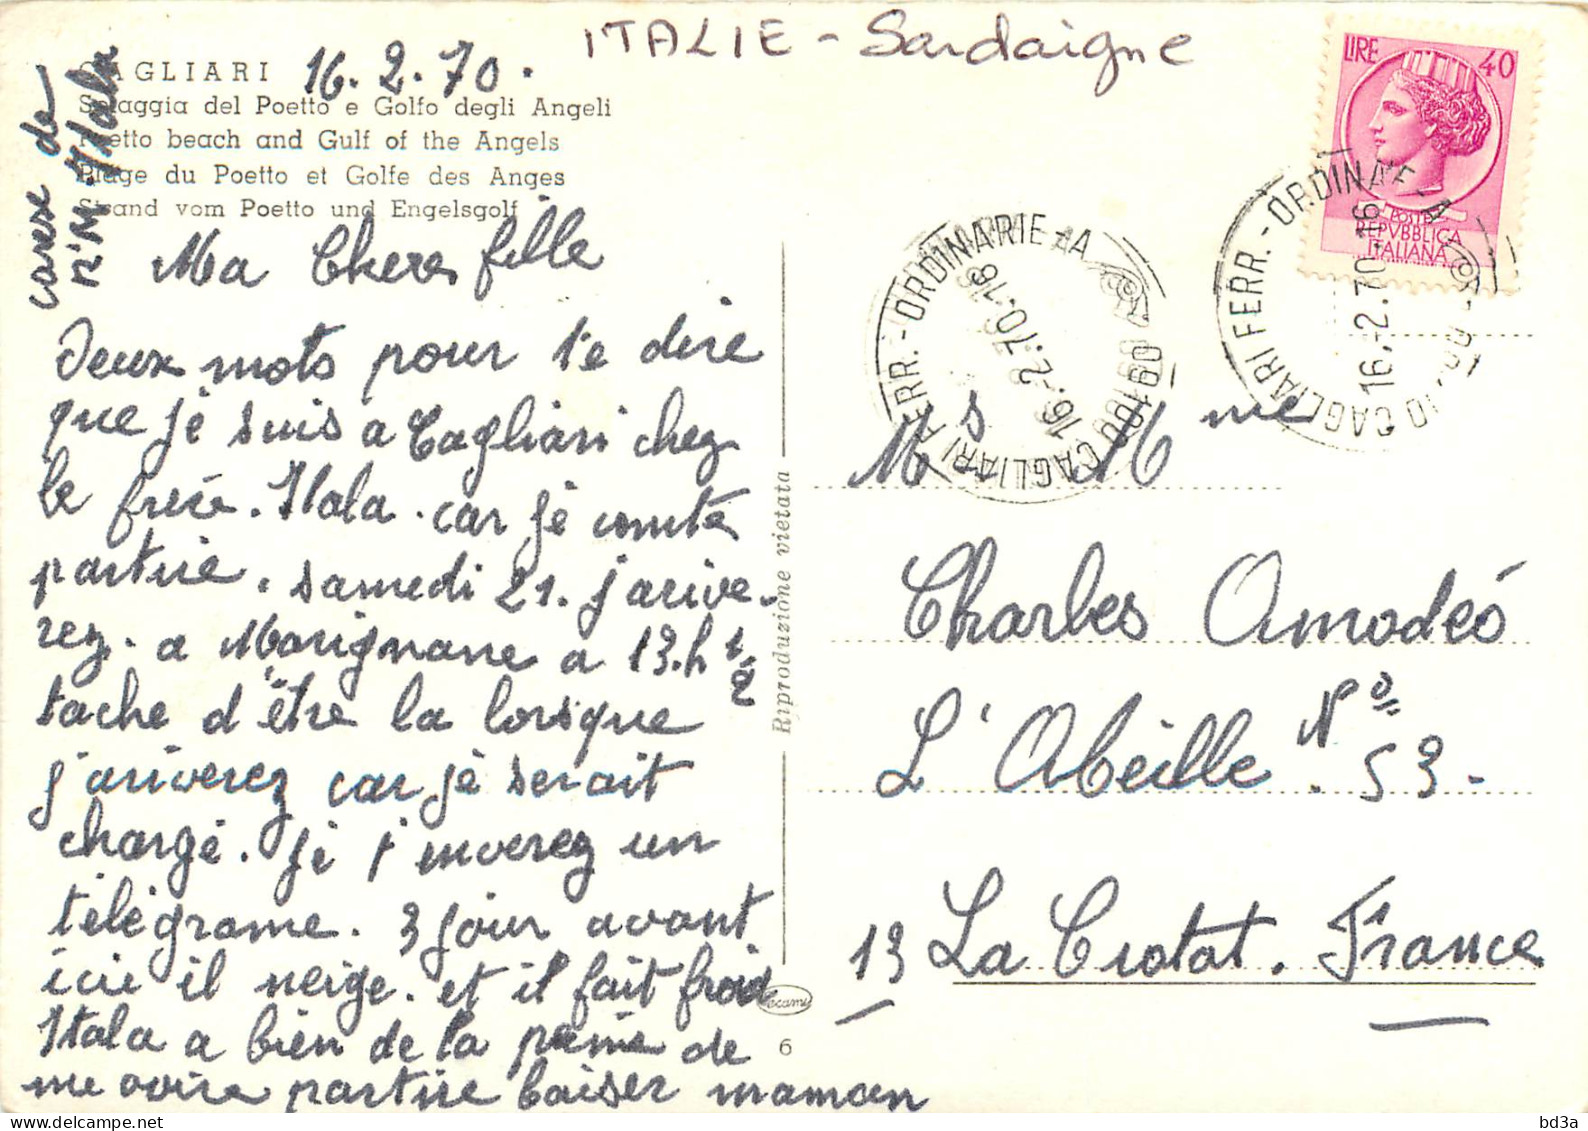 ITALIE - Sardaigne
CAGLIARI 16.2.70.
Spiaggia del Poetto e Golfo degli Angeli
Poetto beach and Gulf of the Angels
Plage du Poetto et Golfe des Anges
Strand vom Poetto und Engelsgolf
de
Itala
Ma Chere fille
Deux mots pour te dire
que je suis a Cagliari chez
le frere. Itala. car je comte
partire. samedi 21. j'arive-
rez. a Marignane a 13.h 1/2
tache d'être la lorsque
j'ariverez car je serait
chargé. Je t'inverez un
télégrame. 3 jour avant
icie il neige. et il fait froid
Itala a bien de la peine de
me voire partire baiser maman
Riproduzione vietata
6
LIRE 40
POSTE
REPVBBLICA
ITALIANA
CAGLIARI FERR. - ORDINARIE - A
16.-2.70.-18
09100 CAGLIARI
CAGLIARI FERR. - ORDINARIE - A
16.-2.70.-18
Ms Mme
Charles Amodéo
L'Abeille. No 53.
13 La Ciotat. France
bd3a